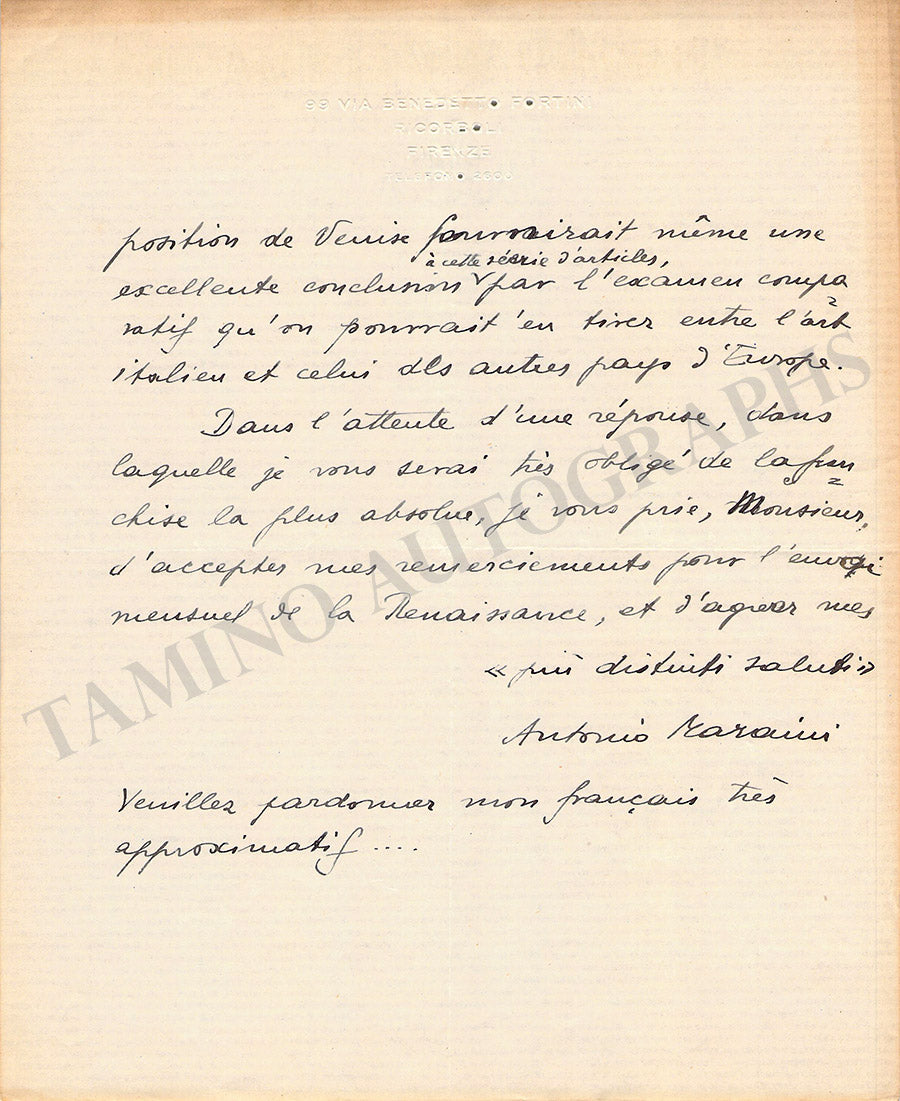 99 VIA BENEDETTO FORTINI
RICORBOLI
FIRENZE
TELEFONO 2600
position de Venise fournirait même une
à cette série d'articles,
excellente conclusion par l'examen compa
ratif qu'on pourrait en tirer entre l'art
italien et celui des autres pays d'Europe.
Dans l'attente d'une réponse, dans
laquelle je vous serai très obligé de la fran
chise la plus absolue, je vous prie, Monsieur,
d'accepter mes remerciements pour l'envoi
mensuel de la Renaissance, et d'agreer mes
« più distinti saluti »
Antonio Maraini
Veuillez pardonner mon français très
approximatif ....
TAMINO AUTOGRAPHS